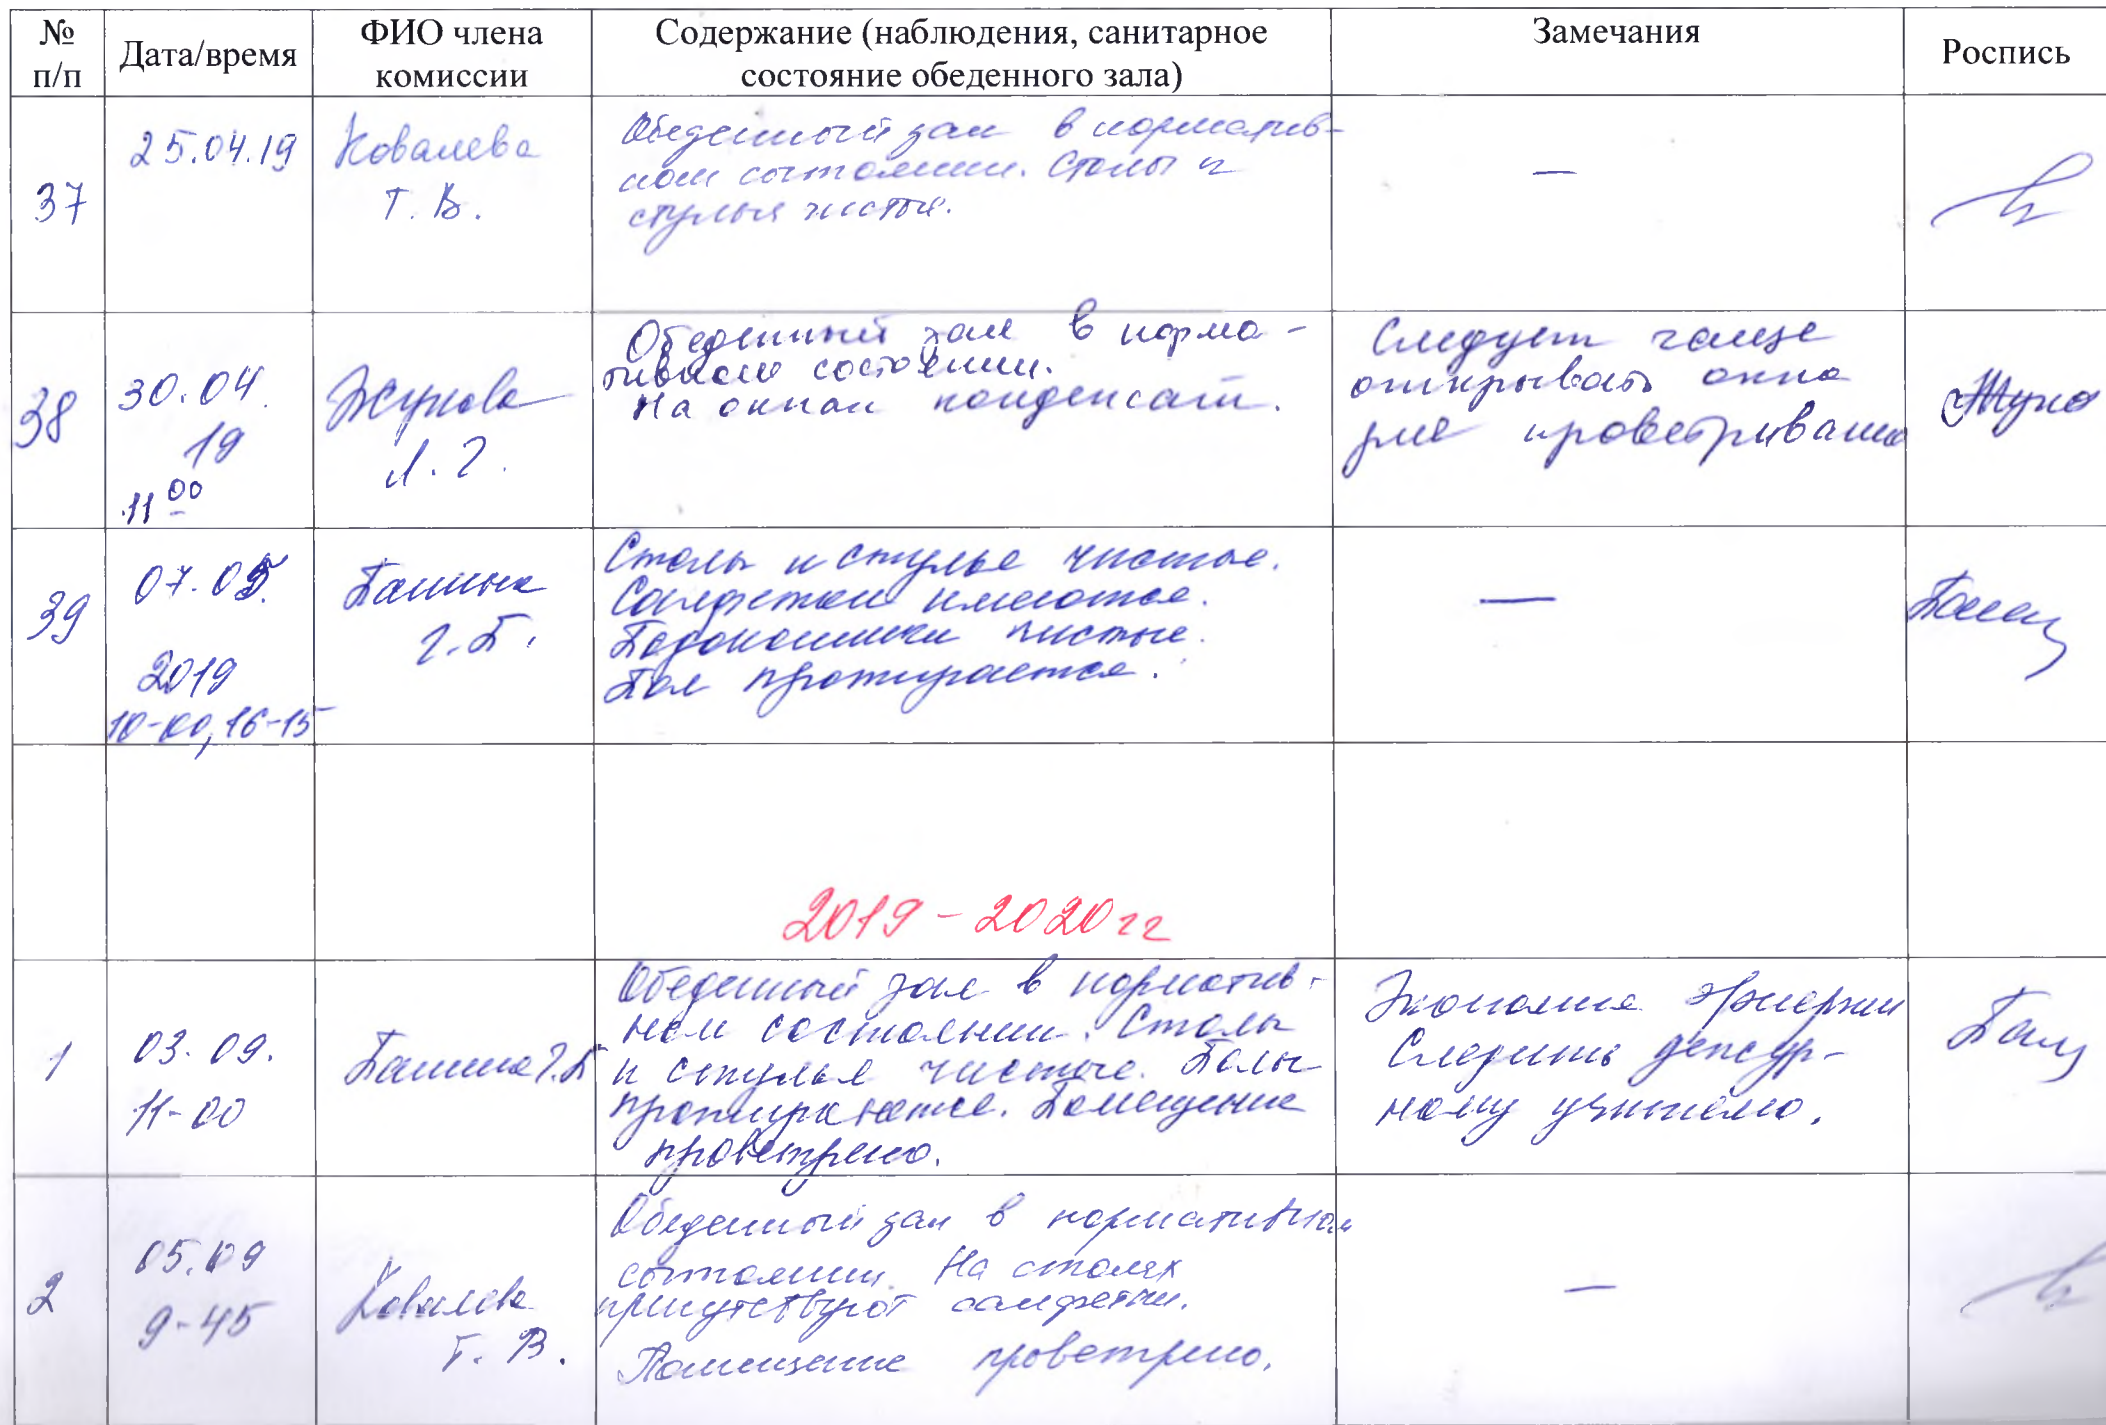 № п/п
Дата/время
ФИО члена комиссии
Содержание (наблюдения, санитарное состояние обеденного зала)
Замечания
Роспись
37
25.04.19
Ковалева
Т. В.
Обеденный зал в норматив-
ном состоянии. Столы и
стулья чистые.
—
38
30.04.
19
11 00
Жукова
Л. Г.
Обеденный зал в норма-
тивном состоянии.
На окнах конденсат.
Следует чаще
открывать окна
для проветривания
39
07.05.
2019
10-00, 16-15
Г. Б.
Столы и стулья чистые.
Салфетки имеются.
Подоконники чистые.
Пол протирается.
—
2019 - 2020 гг
1
03.09.
11-00
Г. Б
Обеденный зал в норматив-
ном состоянии. Столы
и стулья чистые. Полы
протираются. Помещение
проветрено.
Экономия энергии
Следить дежур-
ному учителю.
2
05.09
9-45
Ковалева
Т. В.
Обеденный зал в нормативном
состоянии. На столах
присутствуют салфетки.
Помещение проветрено.
—